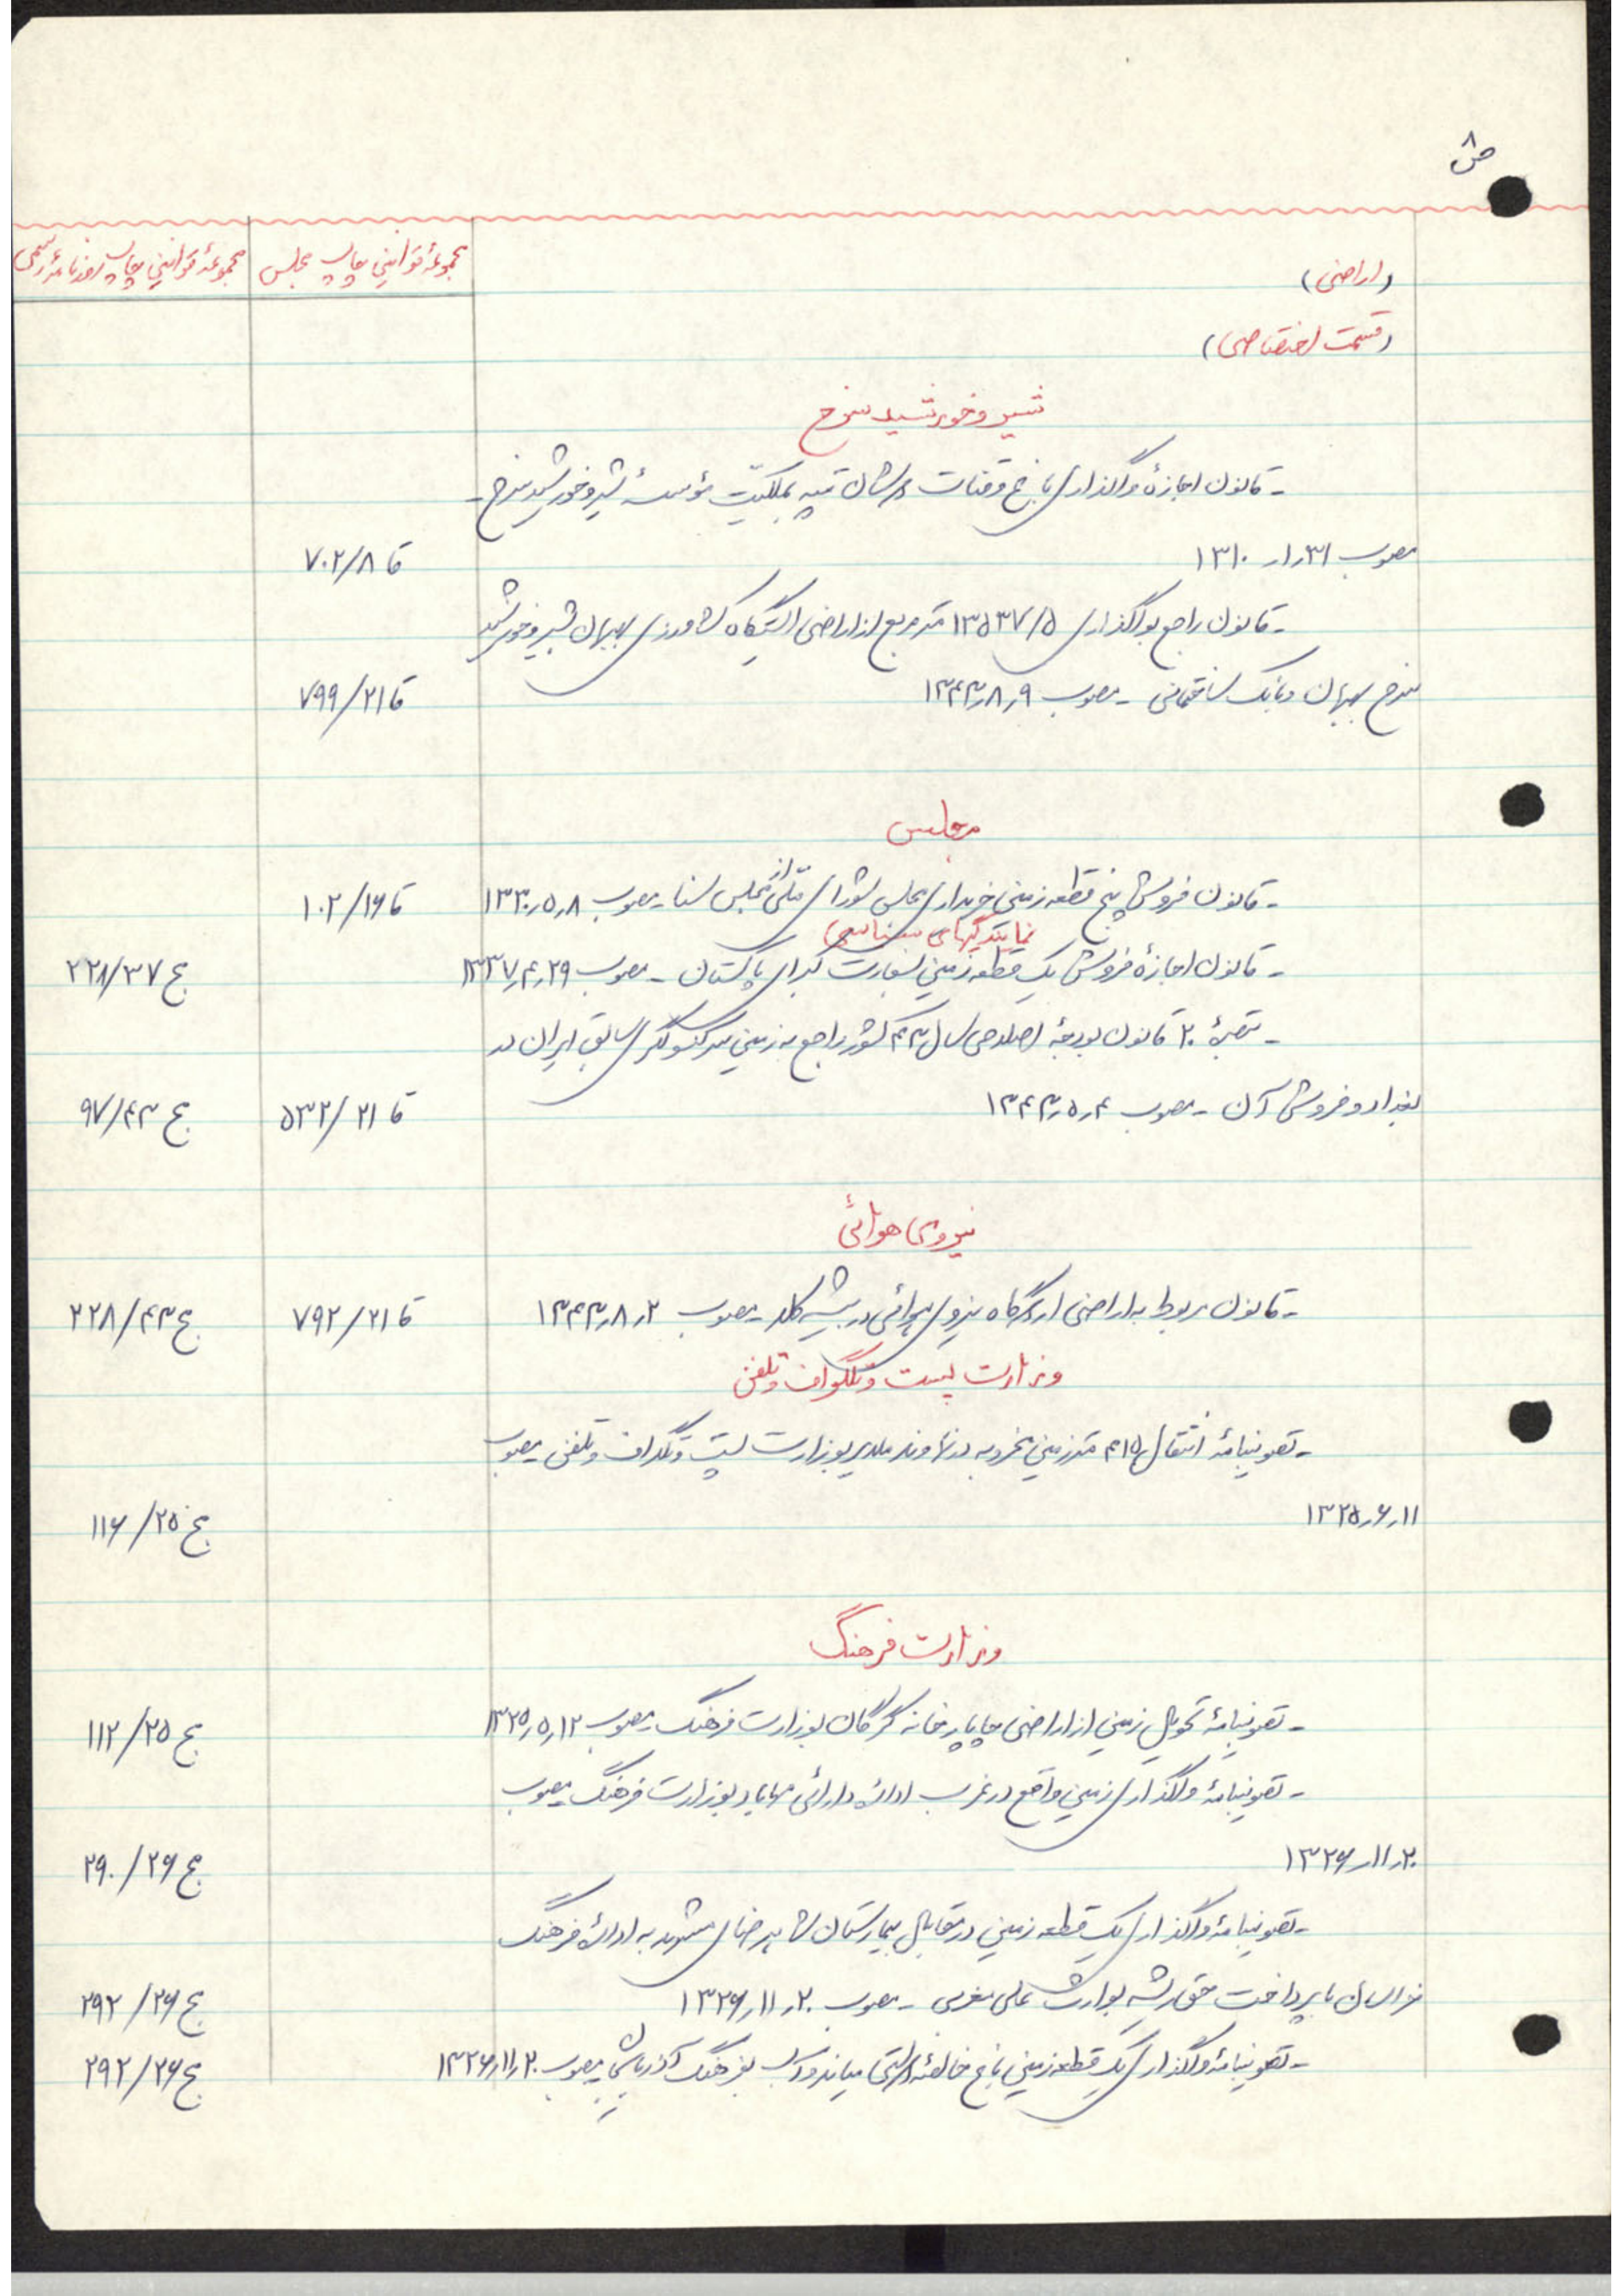 ص ۸
مجموعهٔ قوانین چاپ مجلس
مجموعهٔ قوانین چاپ روزنامهٔ رسمی
(اراضی)
(قسمت اختصاصی)
شیر و خورشید سرخ
- قانون اجازهٔ واگذاری باغ و قنات تپه بملکیت مؤسسهٔ شیر و خورشید سرخ -
مصوب ۳۱ر۱ر۱۳۱۰ قا ۷۰۲/۸
- قانون راجع بواگذاری ۱۳۵۳۷/۵ متر مربع از اراضی ایستگاه کشاورزی بهبهان بشیر و خورشید
سرخ بهبهان و بانک ساختمانی - مصوب ۹ر۸ر۱۳۴۳ قا ۷۹۹/۲۱
مجلس
- قانون فروش پنج قطعه زمین خریداری مجلس شورای ملی از مجلس سنا - مصوب ۸ر۵ر۱۳۳۰ قا ۱۰۲/۱۶
نمایندگیهای سیاسی
- قانون اجازهٔ فروش یک قطعه زمین بسفارت کبرای پاکستان - مصوب ۲۹ر۴ر۱۳۳۷ مج ۲۲۸/۳۷
- تبصرهٔ ۲۰ قانون بودجهٔ اصلاحی سال ۴۳ کشور راجع به زمین سرکنسولگری سابق ایران در
بغداد و فروش آن - مصوب ۴ر۵ر۱۳۴۳ قا ۵۳۲/۲۱ مج ۹۷/۴۳
نیروی هوائی
- قانون مربوط به اراضی اردوگاه نیروی هوائی در بیشه کلا - مصوب ۲ر۸ر۱۳۴۳ قا ۷۹۲/۲۱ مج ۲۲۸/۴۳
وزارت پست و تلگراف و تلفن
- تصویبنامهٔ انتقال ۴۱۵ متر زمین مخروبه در نهاوند ملایر بوزارت پست و تلگراف و تلفن - مصوب
۱۱ر۶ر۱۳۲۵ مج ۱۱۶/۲۵
وزارت فرهنگ
- تصویبنامهٔ تحویل زمین از اراضی چاپارخانه گرگان بوزارت فرهنگ - مصوب ۱۲ر۵ر۱۳۲۵ مج ۱۱۲/۲۵
- تصویبنامهٔ واگذاری زمین واقع در غرب ادارهٔ دارائی مهاباد بوزارت فرهنگ - مصوب
۲۰ر۱۱ر۱۳۲۶ مج ۲۹۰/۲۶
- تصویبنامهٔ واگذاری یک قطعه زمین در مقابل بیمارستان شاهرضای مشهد به ادارهٔ فرهنگ
خراسان با پرداخت حق ریشه بوارث علی مغربی - مصوب ۲۰ر۱۱ر۱۳۲۶ مج ۲۹۲/۲۶
- تصویبنامهٔ واگذاری یک قطعه زمین باغ خالصهٔ میاندوآب بفرهنگ آذربایجان - مصوب ۲۰ر۱۱ر۱۳۲۶ مج ۲۹۲/۲۶